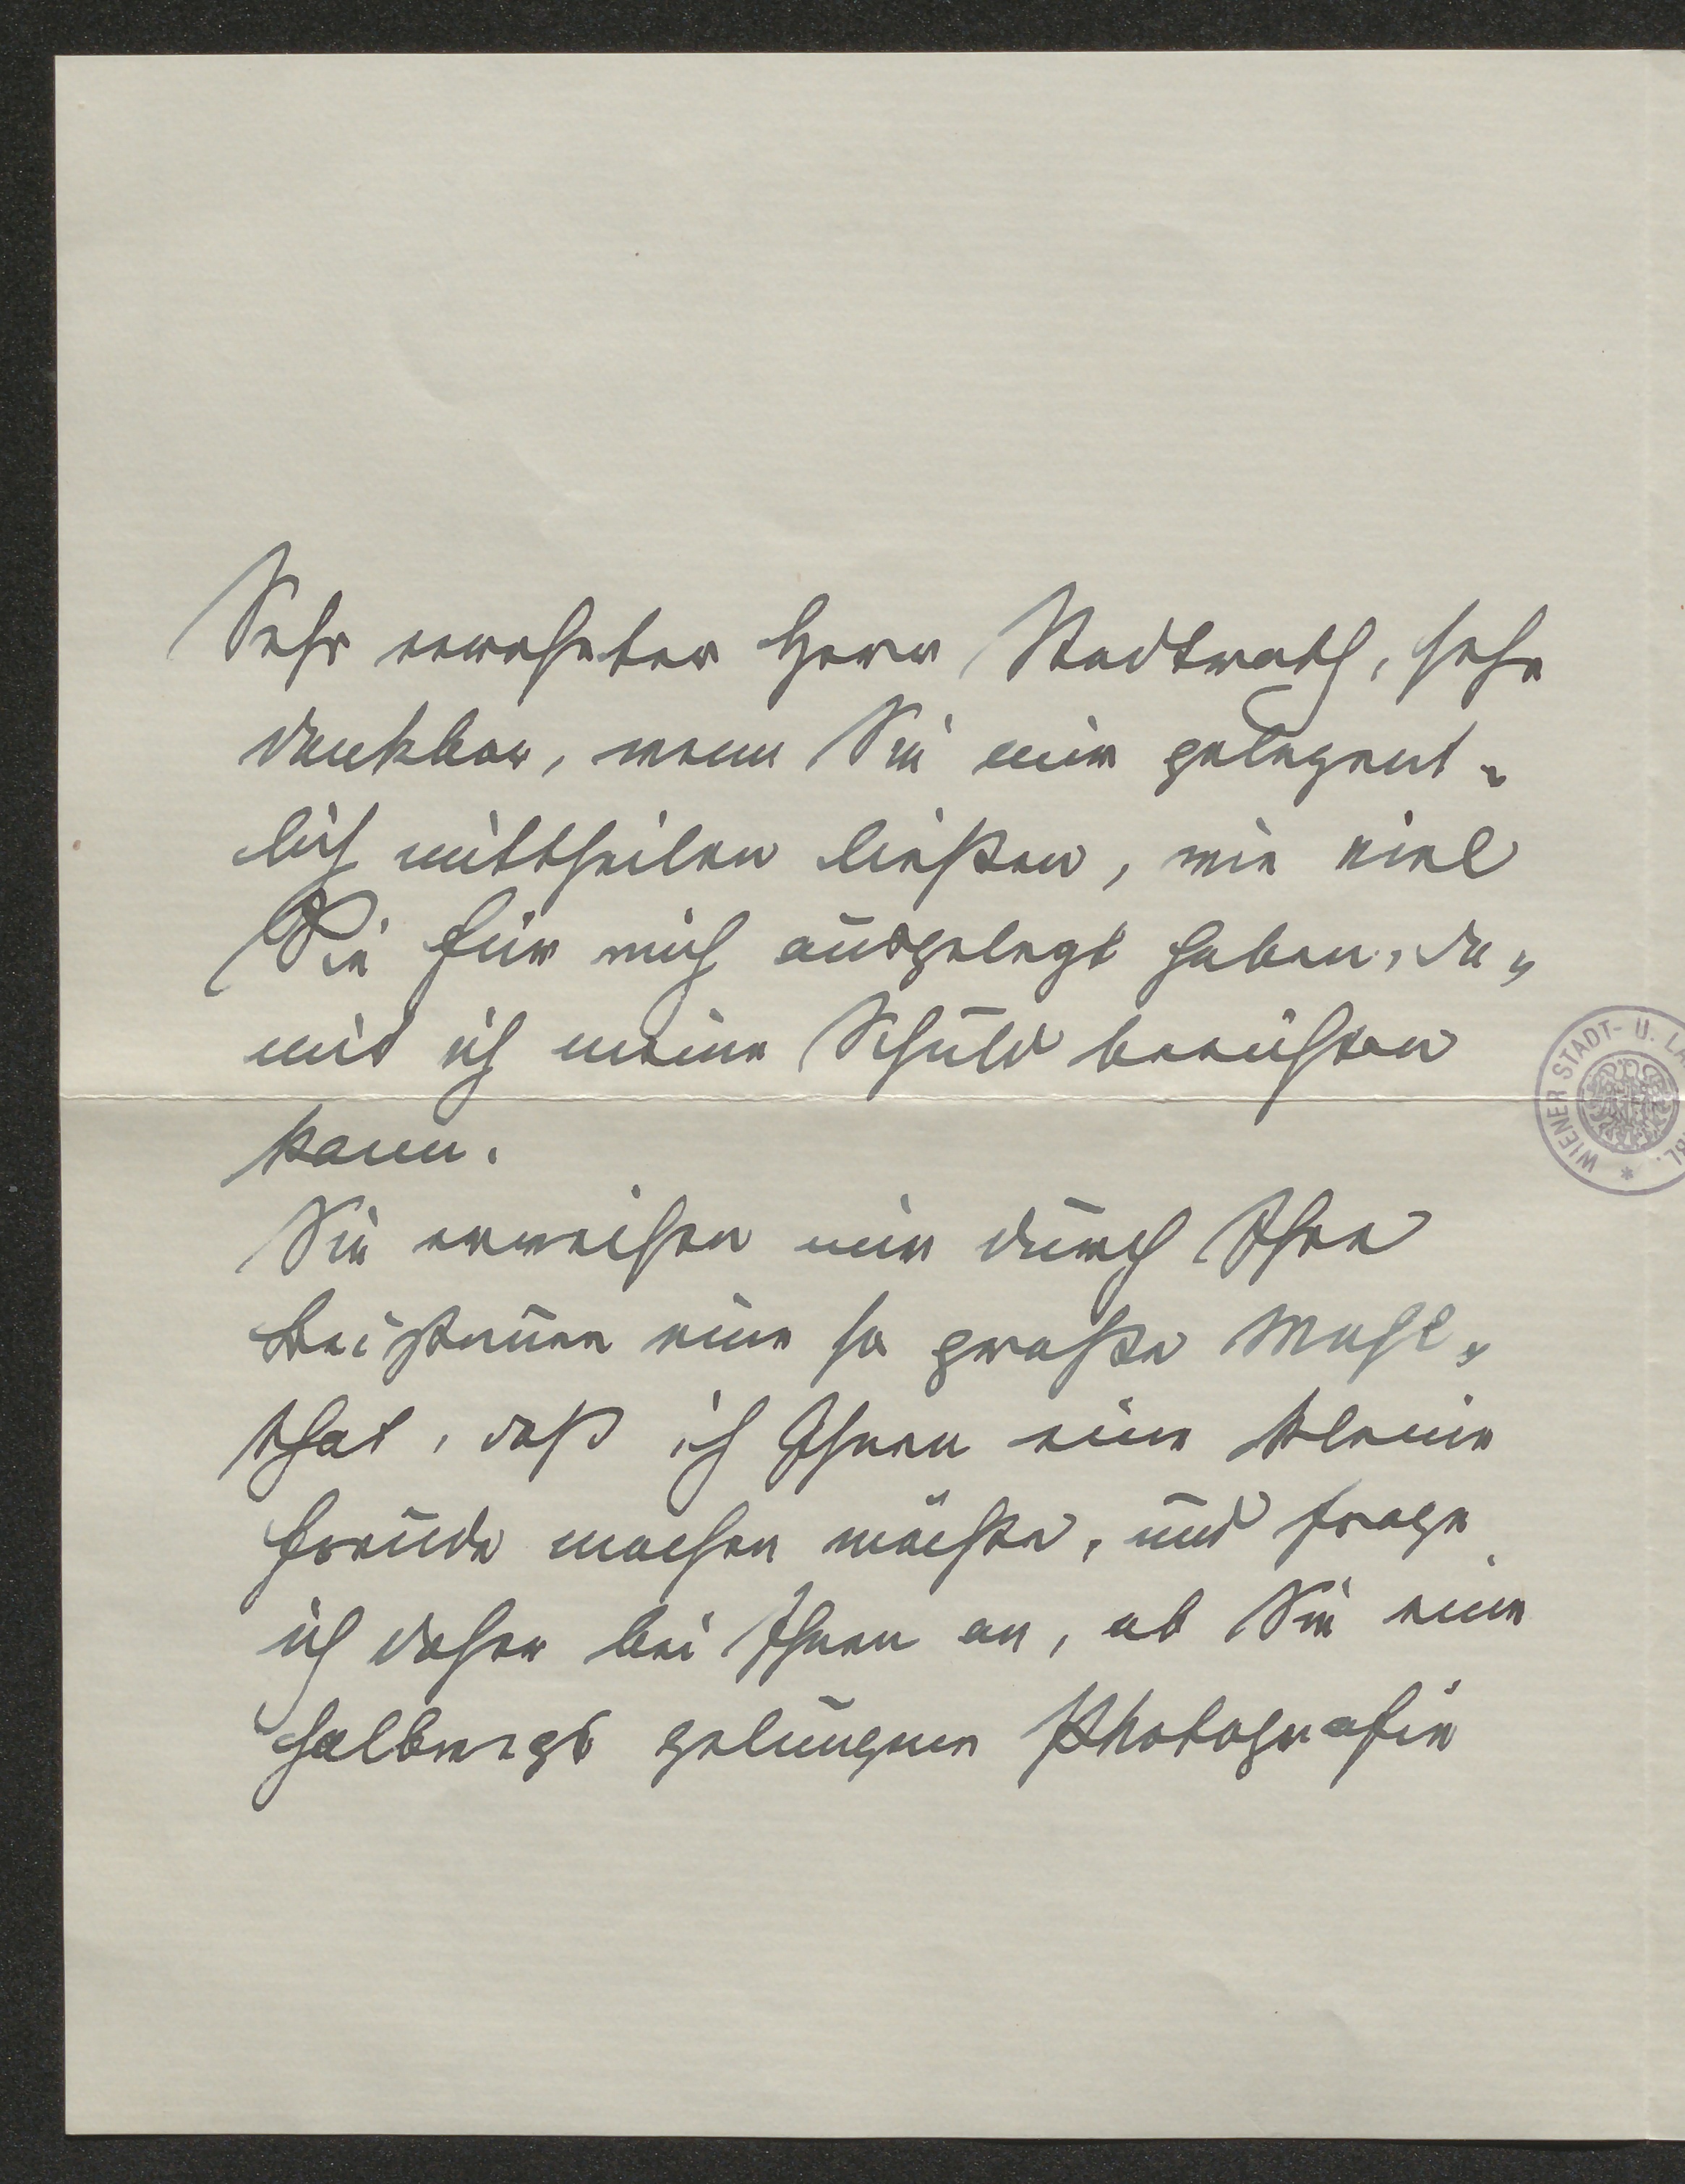 Sehr verehrter Herr Stadtrath, sehr
dankbar, wenn Sie mir gelegent-
lich mittheilen ließen, wie viel
Sie für mich ausgelegt haben, da-
mit ich meine Schuld berichten
kann.
Sie erweisen mir durch Ihre
eine so große Wohl-
that, daß ich Ihnen eine kleine
Freude machen möchte, und frage
ich daher bei Ihnen an, ob Sie eine
halbwegs gelungene Photografie
WIENER STADT- U. LA
BL. *